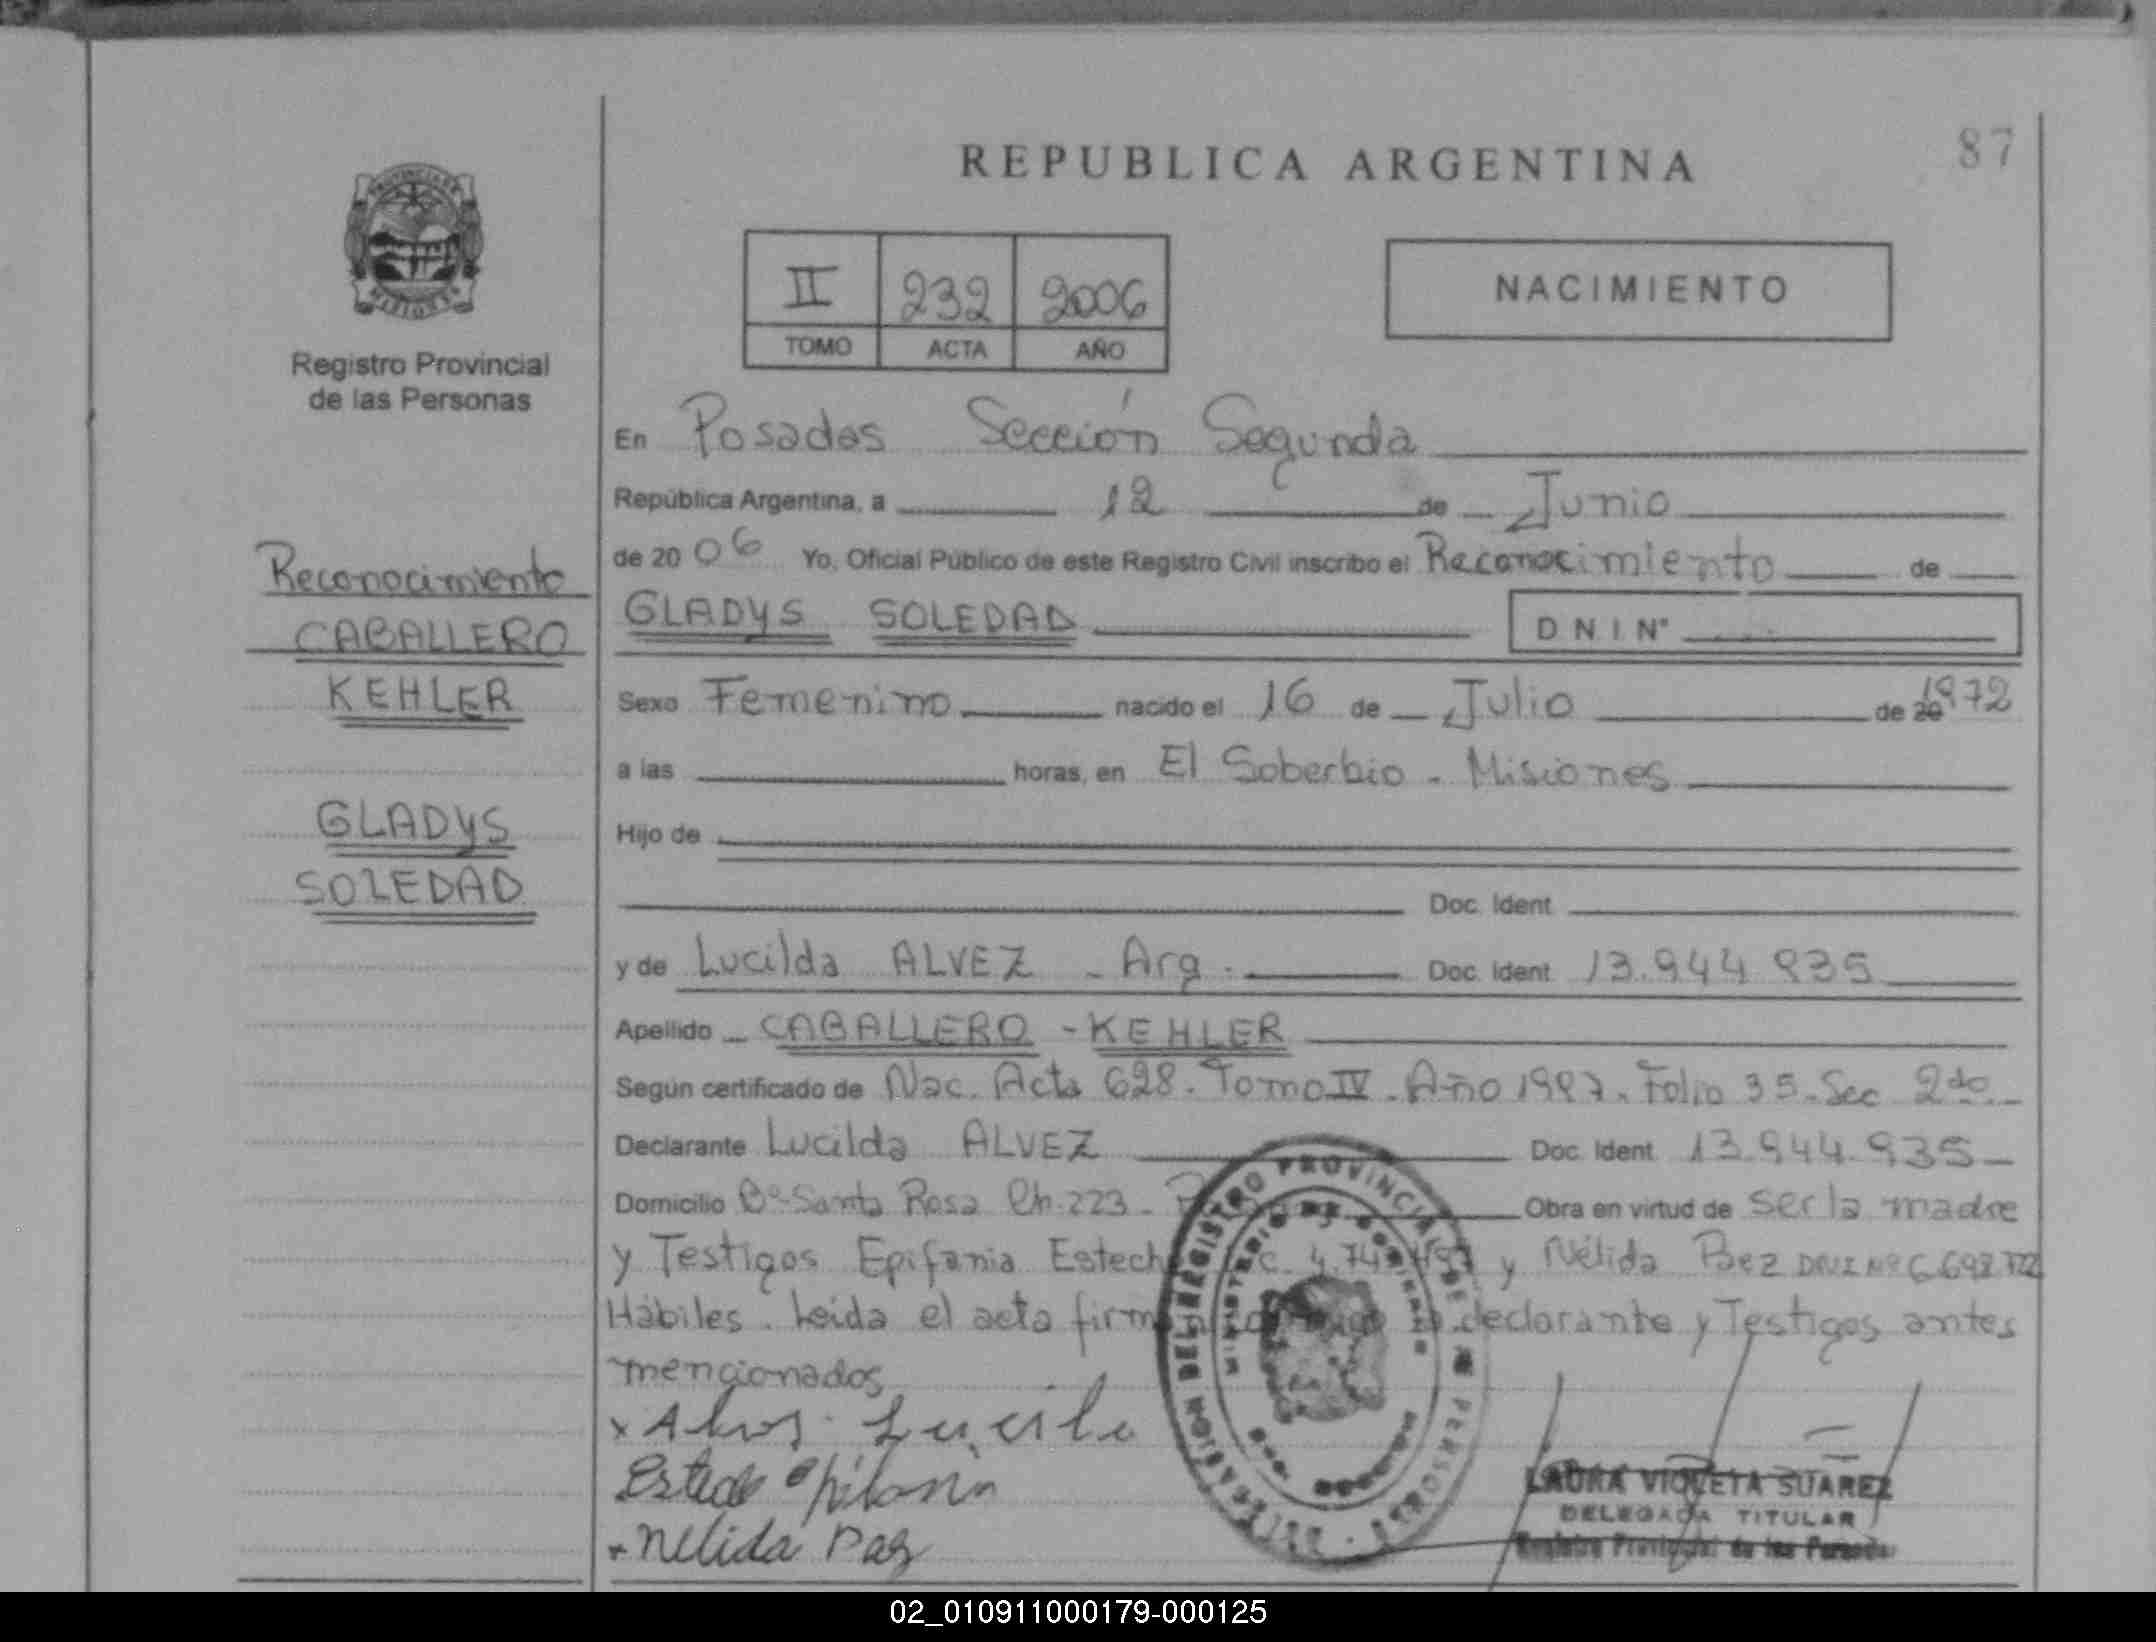 REPUBLICA ARGENTINA
87
PROVINCIA DE
MISIONES
Registro Provincial
de las Personas
II 232 2006
TOMO ACTA AÑO
NACIMIENTO
En Posadas Sección Segunda
República Argentina, a 12 de Junio
de 20 06 Yo, Oficial Público de este Registro Civil inscribo el Reconocimiento de
GLADYS SOLEDAD D N I N°
Sexo Femenino nacido el 16 de Julio de 20 1972
a las horas, en El Soberbio - Misiones
Hijo de
Doc. Ident.
y de Lucilda ALVEZ - Arg. Doc. Ident. 13.944.935
Apellido CABALLERO - KEHLER
Según certificado de Nac. Acta 628. Tomo IV. Año 1987. Folio 35. Sec 2da.
Declarante Lucilda ALVEZ Doc. Ident. 13.944.935
Domicilio Bº Santa Rosa Ch. 223 - Obra en virtud de ser la madre
y Testigos Epifania y Nélida Paez DNI Nº 6.692.772
Hábiles. Leída el acta declarante y Testigos antes
mencionados
x Lucila
+ Nelida Paez
Reconocimiento
CABALLERO
KEHLER
GLADYS
SOLEDAD
DELEGACION DEL REGISTRO PROVINCIAL DE
MINISTERIO DE GOBIERNO
LAURA VIOLETA SUAREZ
DELEGADA TITULAR
Registro Provincial de las Personas
02_010911000179-000125